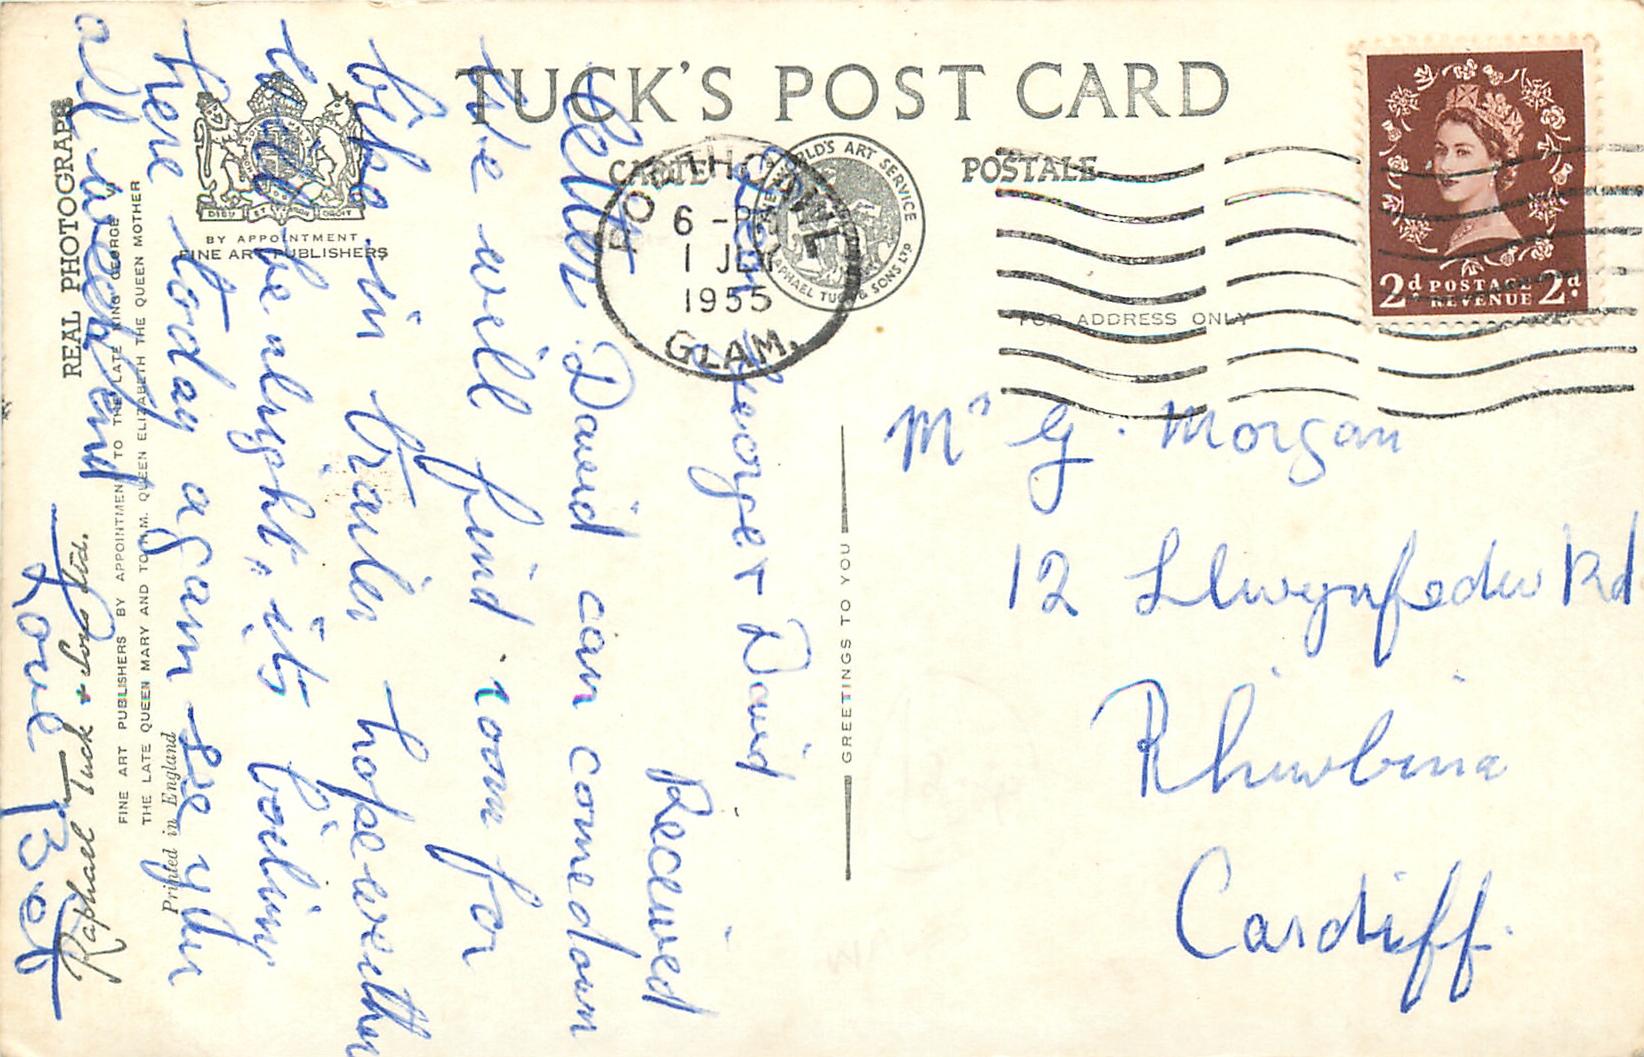 TUCK'S POST CARD
CARTE POSTALE
REAL PHOTOGRAPH
BY APPOINTMENT
FINE ART PUBLISHERS
DIEU ET MON DROIT
WORLD'S ART SERVICE
RAPHAEL TUCK & SONS LTD
PORTHCAWL
6 -PM
1 JLY
1955
GLAM.
2d POSTAGE REVENUE 2d
FOR ADDRESS ONLY
Dear George & David
Received
letter David can come down
we will find room for
bike in trailer hope weather
will be alright, its boiling
here today again see you
all weekend
Love
Mr G. Morgan
12 Llwynfedw Rd
Rhiwbina
Cardiff.
GREETINGS TO YOU
Raphael Tuck & Sons Ltd.
FINE ART PUBLISHERS BY APPOINTMENT TO THE LATE KING GEORGE V
THE LATE QUEEN MARY AND TO H.M. QUEEN ELIZABETH THE QUEEN MOTHER
Printed in England